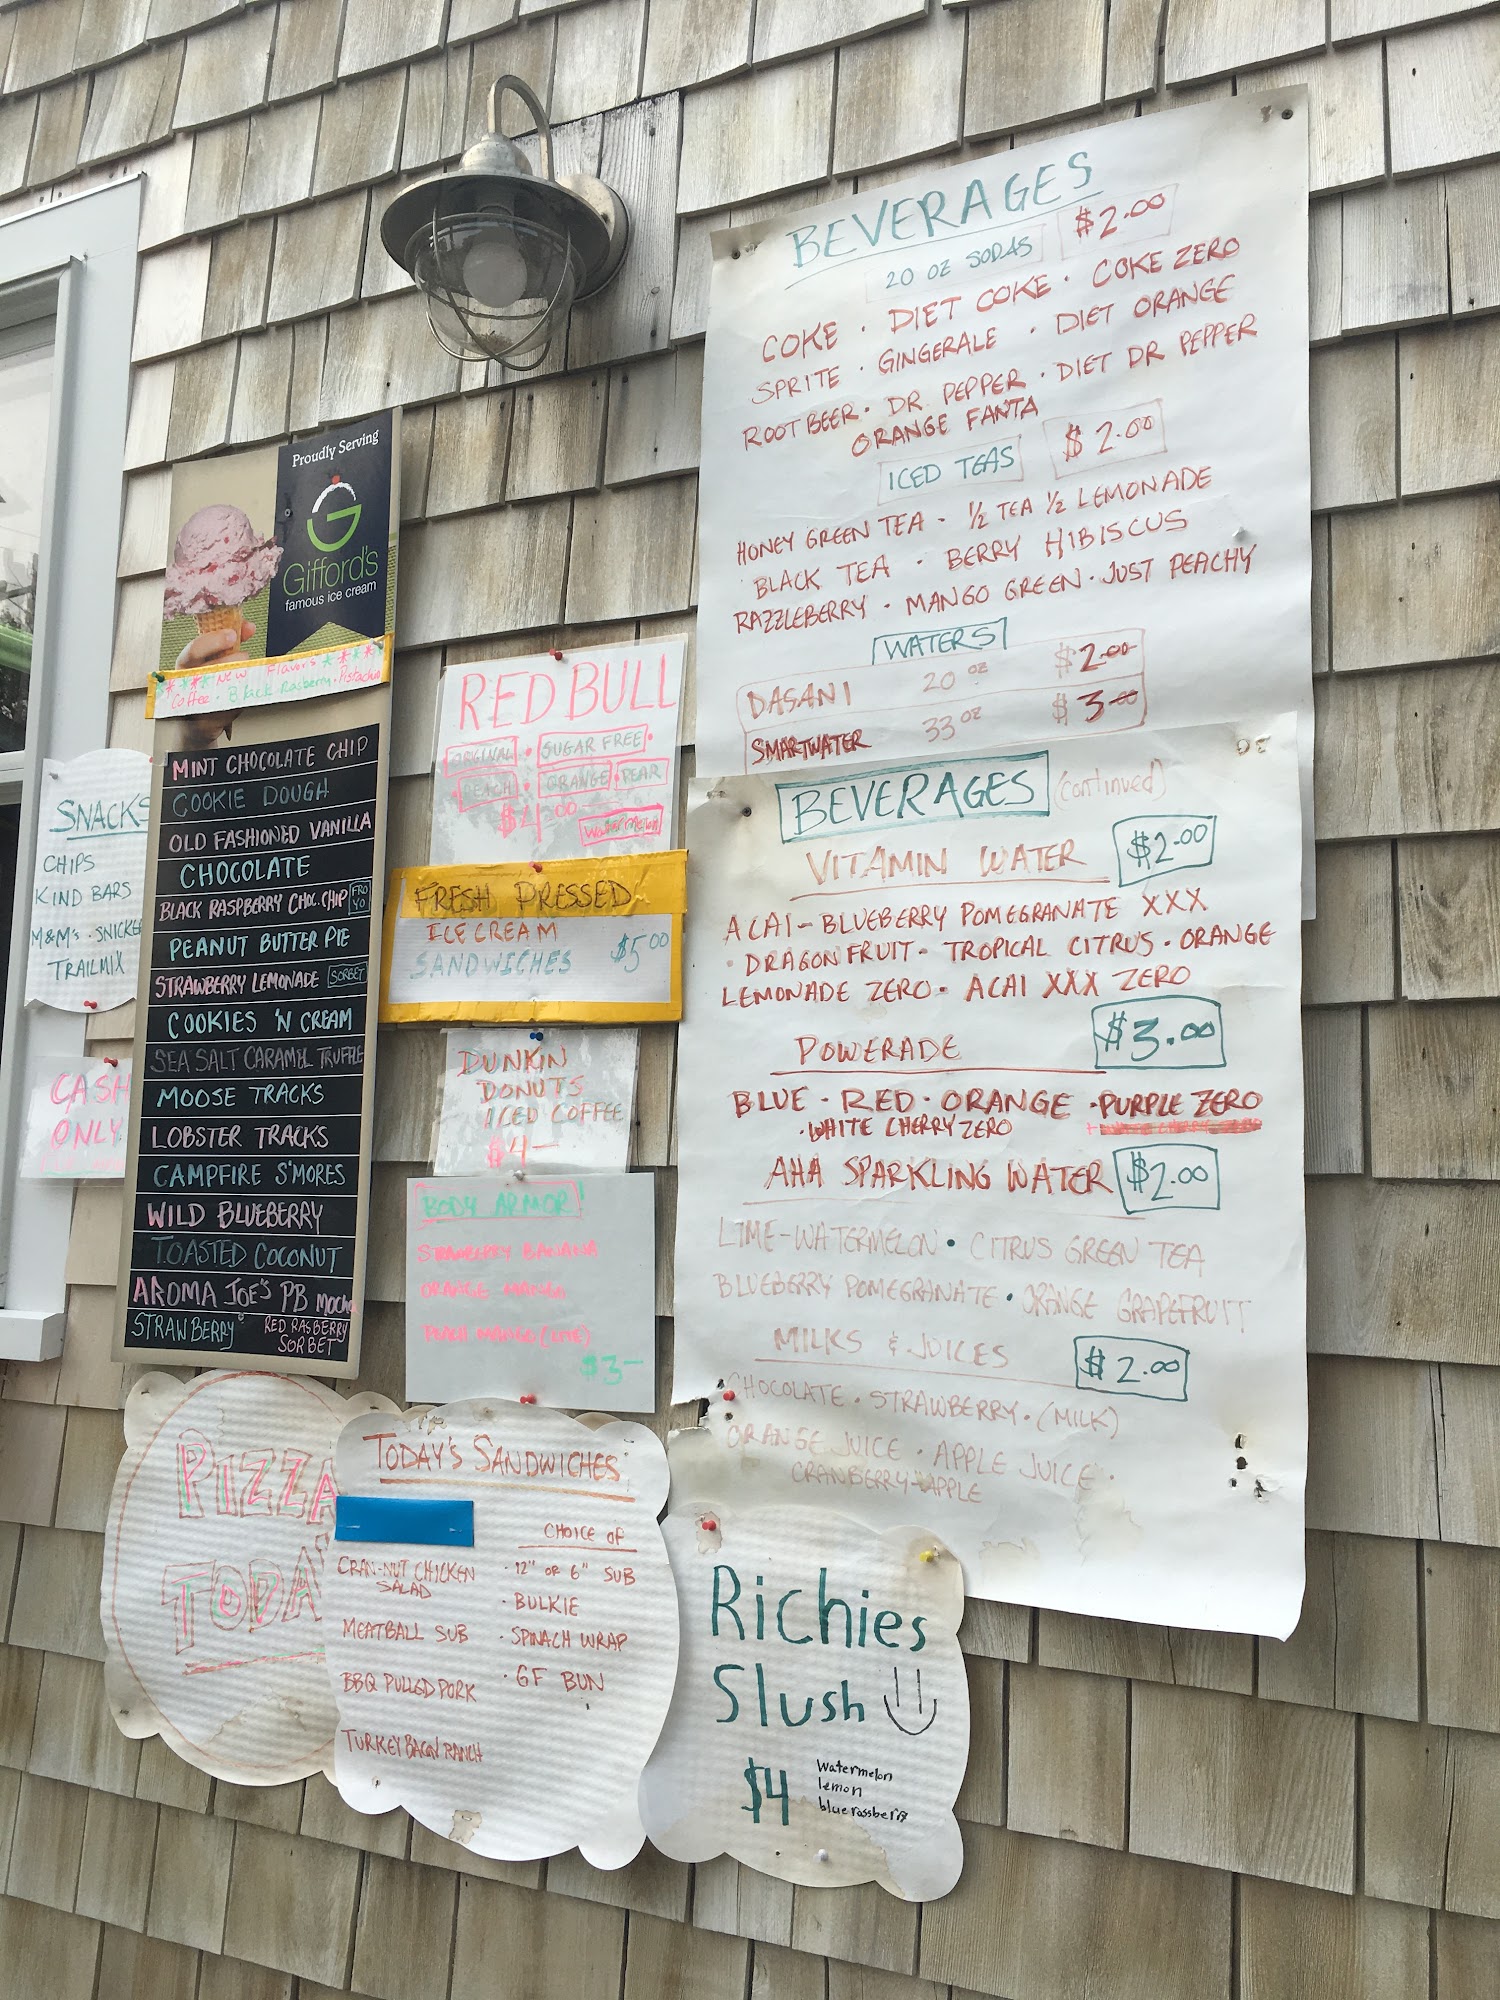 Proudly Serving
G
Gifford's
famous ice cream
New Flavors
Coffee · Black Rasberry · Pistachio
MINT CHOCOLATE CHIP
COOKIE DOUGH
OLD FASHIONED VANILLA
CHOCOLATE
BLACK RASPBERRY CHOC. CHIP FRO YO
PEANUT BUTTER PIE
STRAWBERRY LEMONADE SORBET
COOKIES 'N CREAM
SEA SALT CARAMEL TRUFFLE
MOOSE TRACKS
LOBSTER TRACKS
CAMPFIRE S'MORES
WILD BLUEBERRY
TOASTED COCONUT
AROMA JOE'S PB MOCHA
STRAWBERRY RED RASBERRY
SORBET
SNACKS
CHIPS
KIND BARS
M&M's · SNICKE
TRAILMIX
CASH
ONLY
RED BULL
ORIGINAL · SUGAR FREE ·
PEACH · ORANGE · PEAR
$4.00 Watermelon
FRESH PRESSED
ICE CREAM
SANDWICHES $5.00
DUNKIN
DONUTS
ICED COFFEE
$4—
BODY ARMOR
STRAWBERRY BANANA
ORANGE MANGO
PEACH MANGO (LITE)
$3—
BEVERAGES
20 OZ SODAS $2.00
COKE · DIET COKE · COKE ZERO
SPRITE · GINGERALE · DIET ORANGE
ROOT BEER · DR. PEPPER · DIET DR PEPPER
ORANGE FANTA
ICED TEAS $2.00
HONEY GREEN TEA - ½ TEA ½ LEMONADE
BLACK TEA · BERRY HIBISCUS
RAZZLEBERRY · MANGO GREEN · JUST PEACHY
WATERS
DASANI 20 OZ $2.00
SMARTWATER 33 OZ $3.00
BEVERAGES (continued)
VITAMIN WATER $2.00
ACAI-BLUEBERRY POMEGRANATE XXX
· DRAGONFRUIT - TROPICAL CITRUS · ORANGE
LEMONADE ZERO · ACAI XXX ZERO
POWERADE $3.00
BLUE · RED · ORANGE · PURPLE ZERO
· WHITE CHERRY ZERO
AHA SPARKLING WATER $2.00
LIME-WATERMELON · CITRUS GREEN TEA
BLUEBERRY POMEGRANATE · ORANGE GRAPEFRUIT
MILKS & JUICES $2.00
CHOCOLATE · STRAWBERRY · (MILK)
ORANGE JUICE · APPLE JUICE ·
CRANBERRY-APPLE
PIZZA
TODAY
TODAY'S SANDWICHES
CHOICE OF
CRAN-NUT CHICKEN
SALAD
MEATBALL SUB
BBQ PULLED PORK
TURKEY BACON RANCH
· 12" OR 6" SUB
· BULKIE
· SPINACH WRAP
· GF BUN
Richies
Slush
$4
Watermelon
lemon
blue rassberry